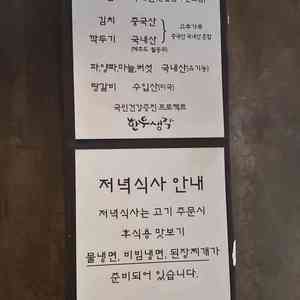 김치 중국산
깍두기 국내산
고추가루
중국산 국내산 혼합
파,양파,마늘,버섯 국내산(유기농)
탕갈비 수입산(미국)
국민건강증진 프로젝트
한우생각
저녁식사 안내
저녁식사는 고기 주문시
후식용 맛보기
물냉면, 비빔냉면, 된장찌개가
준비되어 있습니다.